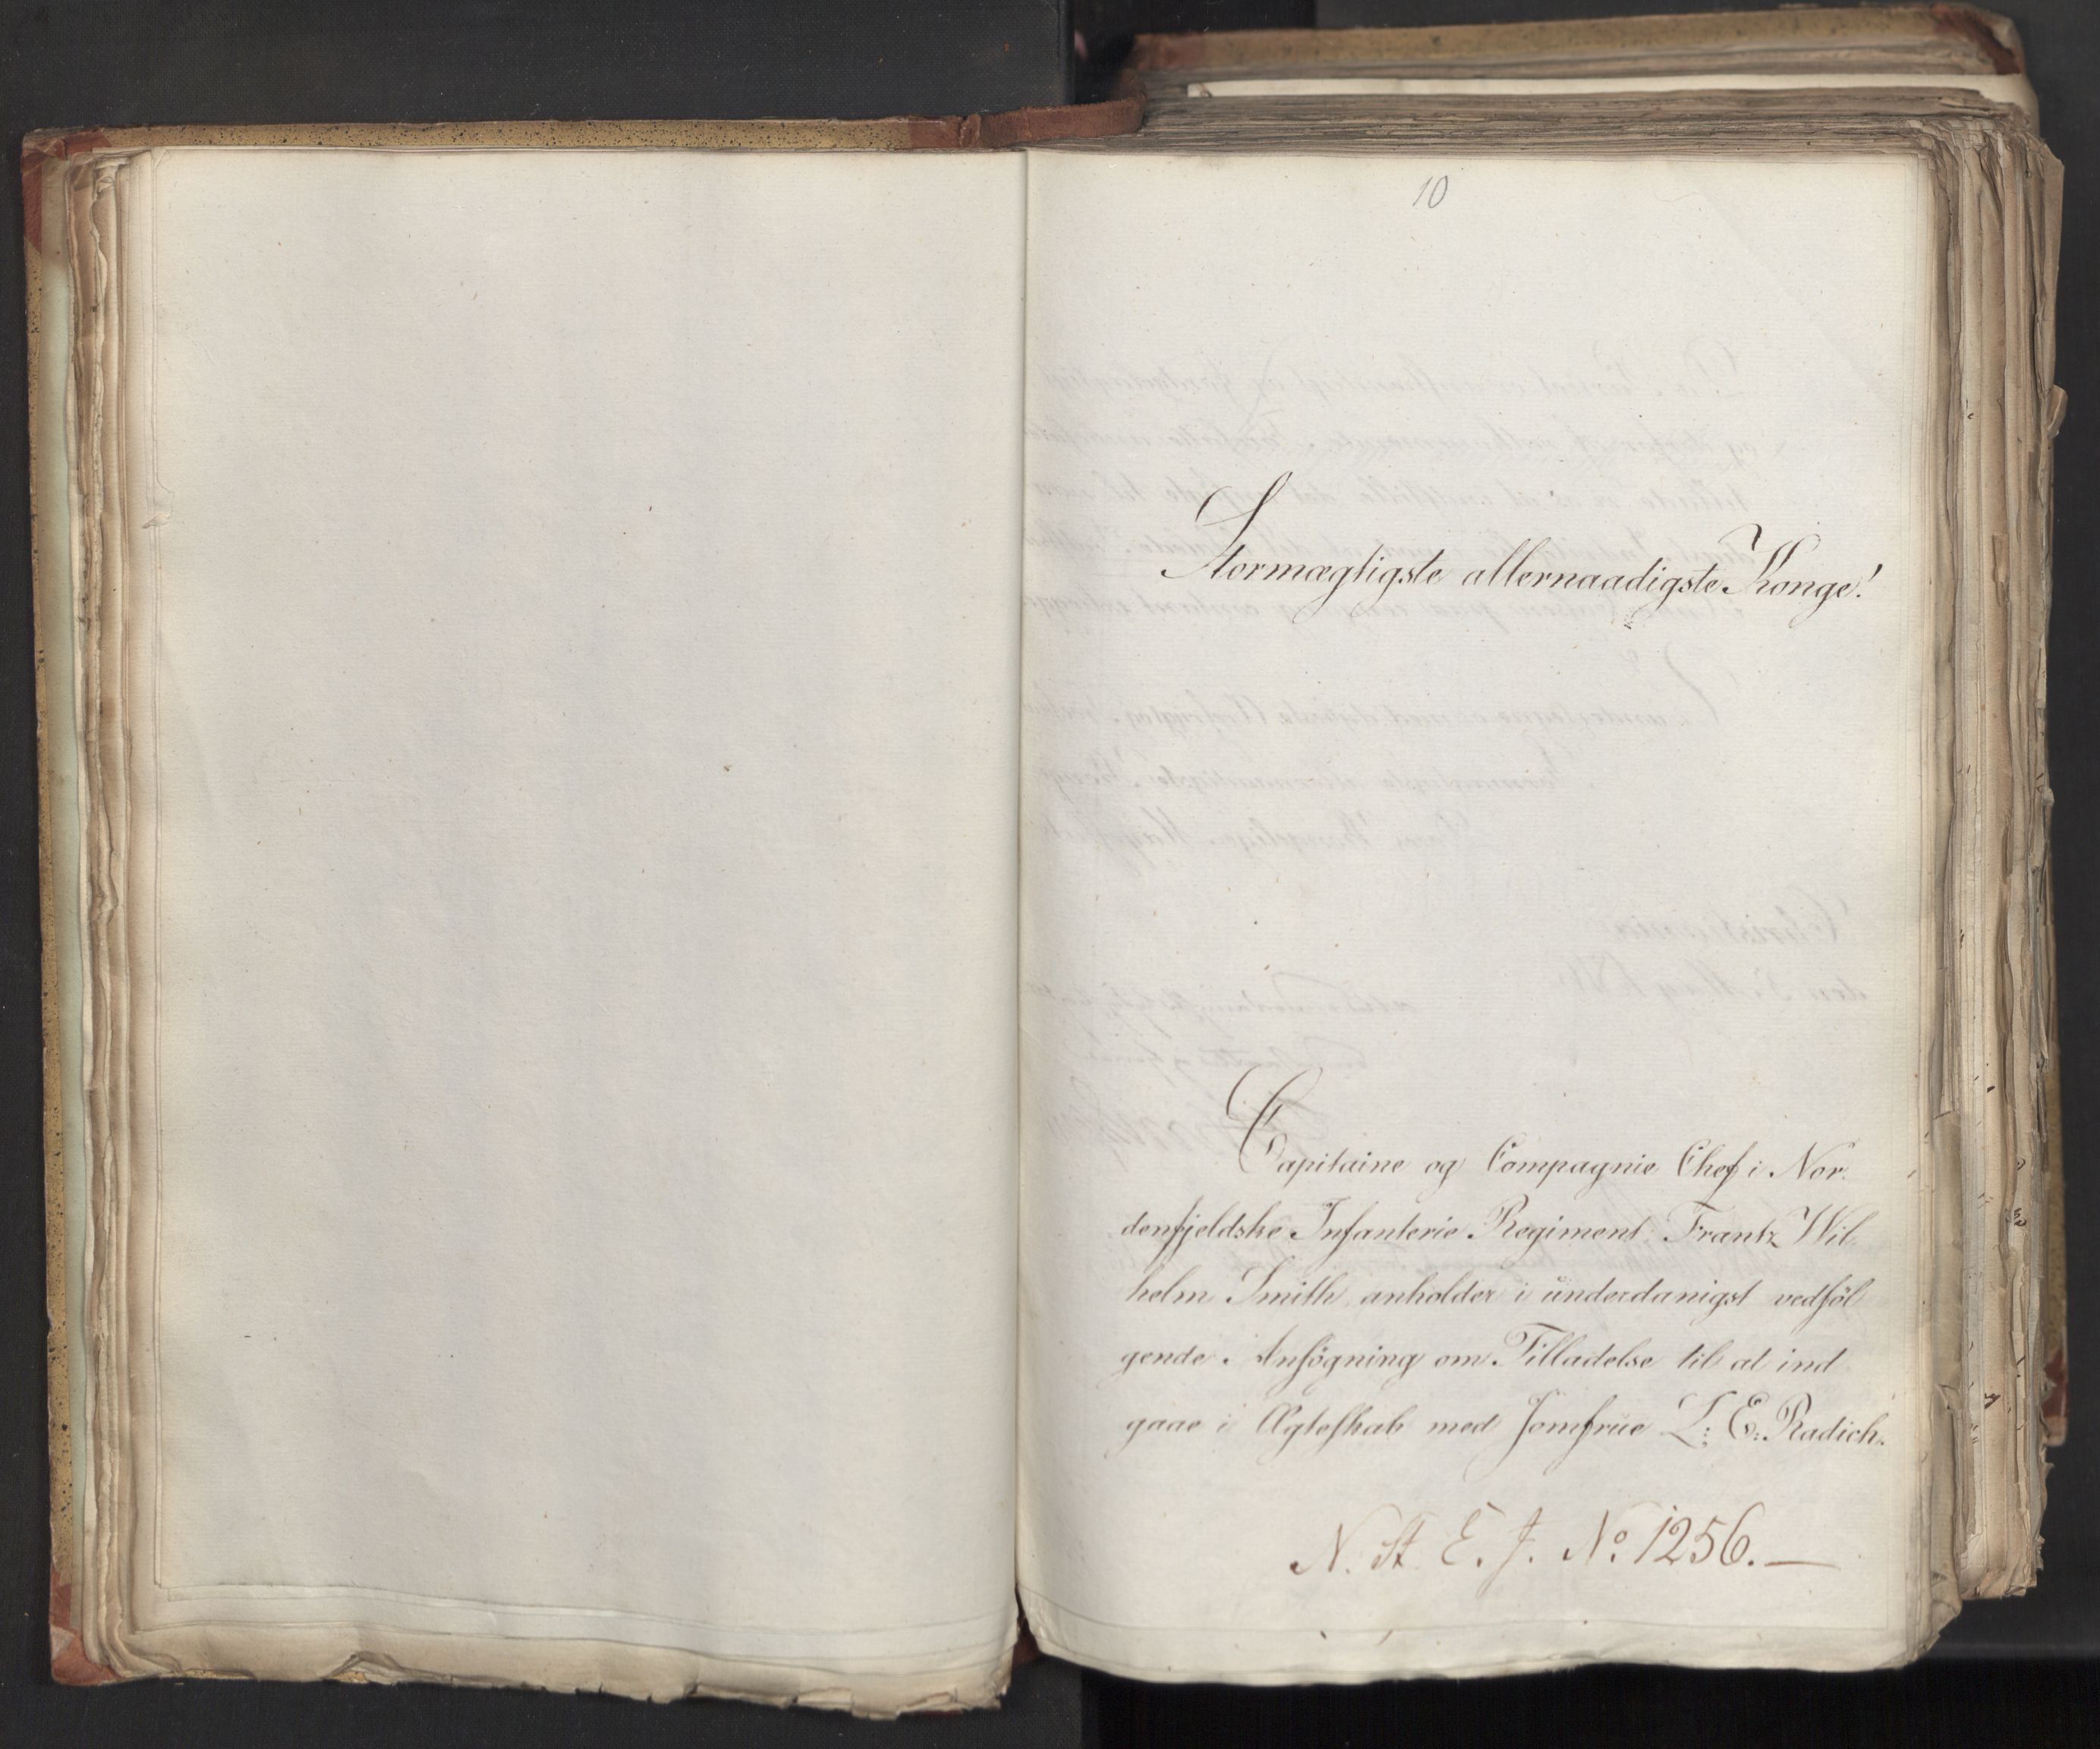 10
Stormægtigste allernaadigste Konge!
Capitaine og Compagnie Chef i Nor-
denfjeldske Infanterie Regiment Frantz Wil-
helm Smith anholder i underdanigst vedføl
gende Ansøgning om Tilladelse til at ind
gaae i Ægteskab med Jomfrue L: E: Radich.
N. St. E. J. No. 1256.—